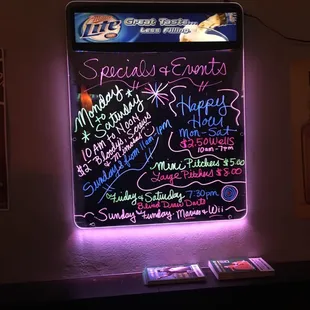 Lite
Great Taste...
Less Filling
Specials & Events
Monday
to
Saturday
10 AM to NOON
$2 Bloodys, Screws
Mimosas
Sundays from 11am-1pm
Happy
Hour
Mon-Sat
$2.50 Wells
10am-7pm
Mini Pitchers $5.00
Large Pitchers $8.00
Friday & Saturday 7:30pm
Blind Draw Darts
Sunday Funday Movies & Wii